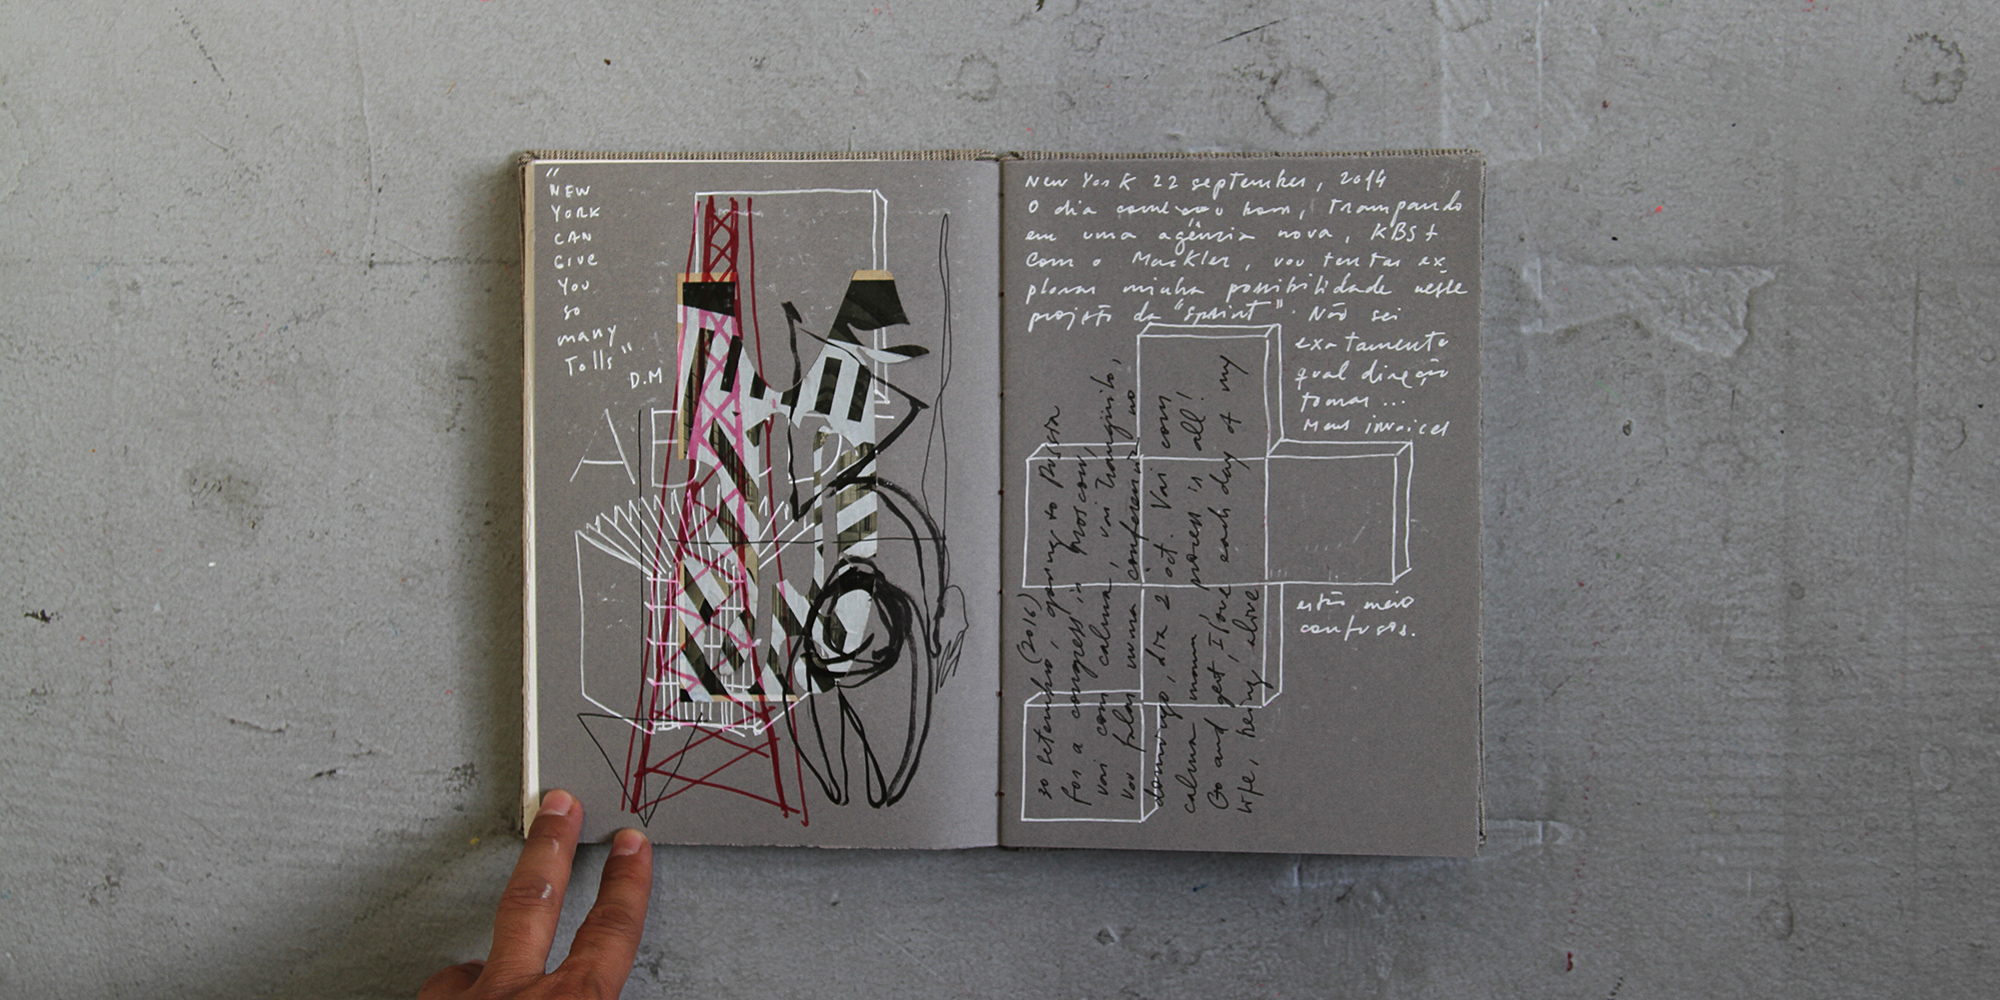 "
NEW
YORK
CAN
GIVE
YOU
so
many
Tolls"
D.M
A
New York 22 september, 2014
O dia começou bom, trampando
em uma agência nova, KBS+
com o Mackler, vou tentar ex
plorar minha possibilidade nesse
projeto da "sprint". Não sei
exatamente
qual direção
tomar...
Meus invoices
estão meio
confusos.
so setembro (2016)
for a congress in moscow, going to Russia
vai com calma, vai tranquilo,
vou falar numa conferencia no
domingo, dia 2 oct. Vai com
calma mann, process is all!
Go and get, I love each day of my
life, being alive